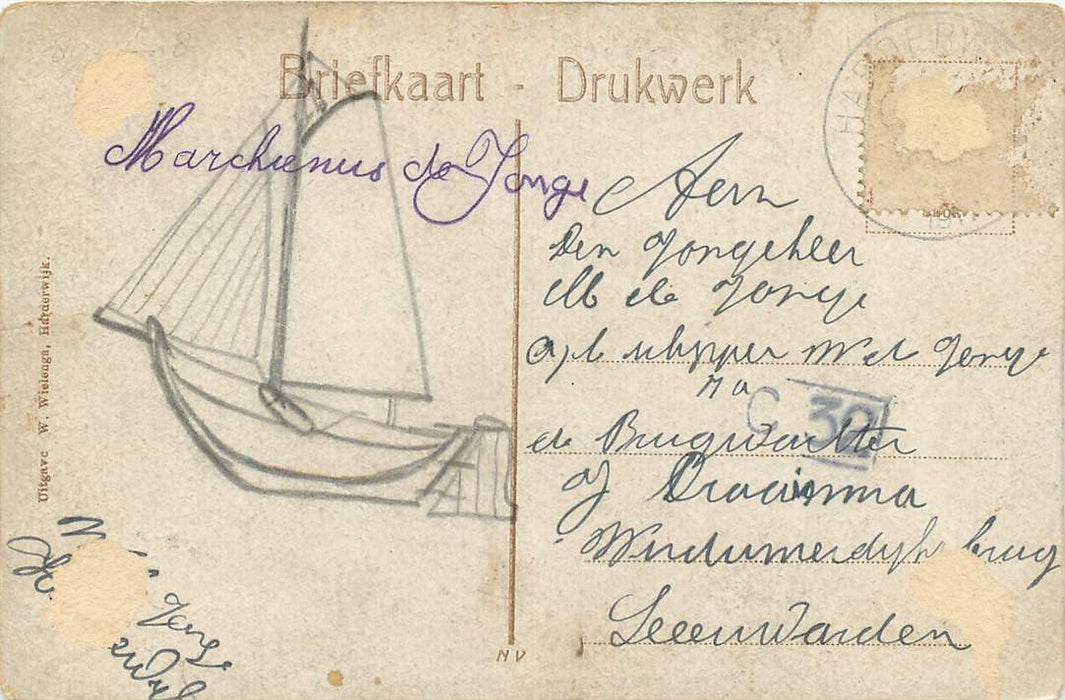 Briefkaart - Drukwerk
HARDERW
Marchienus de Jonge
Aern
Den Jongeheer
M de Jonge
a/b schipper W de Jonge
na
C 39
de Brugwachter
of
Wirdumerdijk brug
Leeuwarden
NV
Uitgave W. Wielenga, Harderwijk.
de Jonge